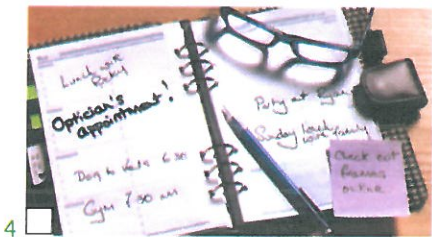 Lunch with
Ricky
Optician's
appointment!
Dog to Vets 6.30
Gym 7.30 am
Party at Ryans
Sunday lunch
with family
Check out
frames
online
4